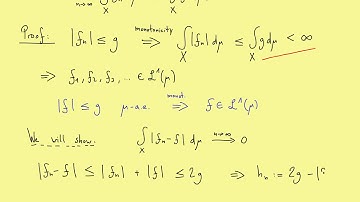 n→∞ ∫ fₙ dμ ∫ f dμ
X X
Proof: |fₙ| ≤ g ⟹ (monotonicity) ∫_X |fₙ| dμ ≤ ∫_X g dμ < ∞
⟹ f₁, f₂, f₃, ... ∈ ℒ¹(μ)
|f| ≤ g μ-a.e. ⟹ (monot.) f ∈ ℒ¹(μ)
We will show: ∫_X |fₙ-f| dμ →(n→∞) 0
|fₙ-f| ≤ |fₙ| + |f| ≤ 2g ⟹ hₙ := 2g - |f